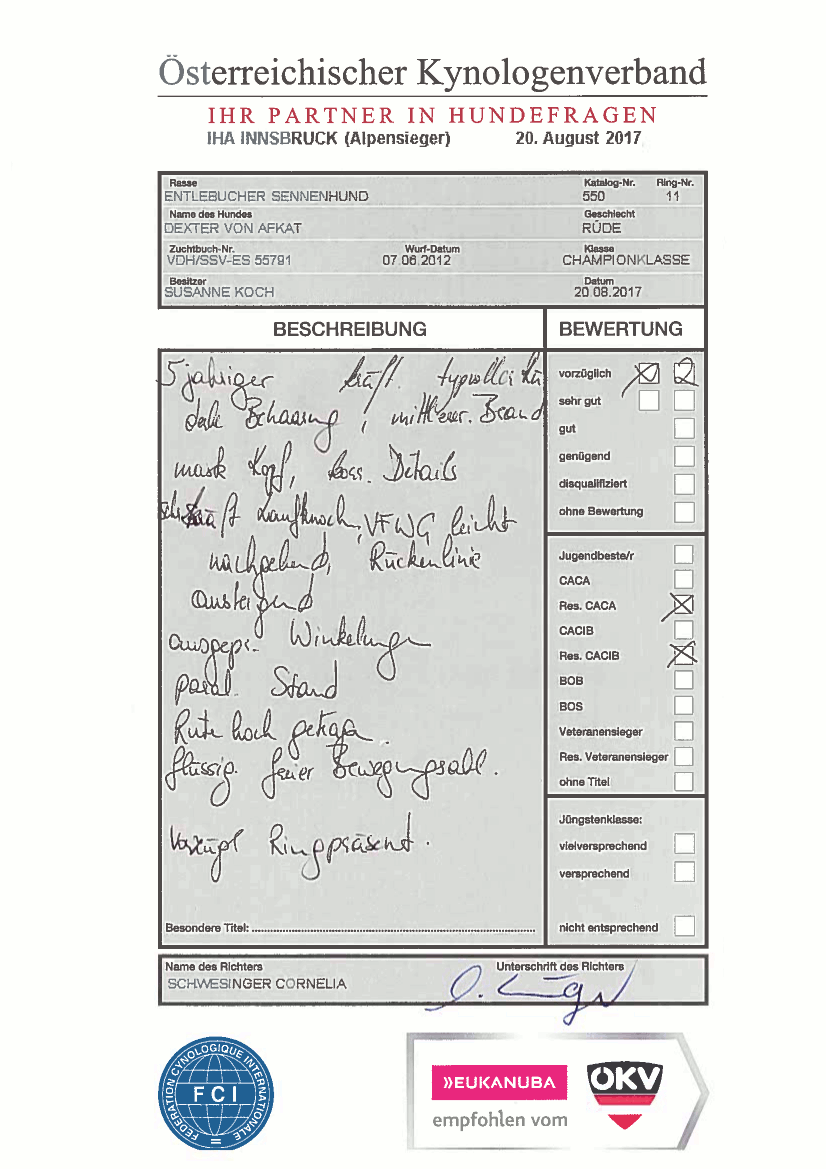 Österreichischer Kynologenverband
IHR PARTNER IN HUNDEFRAGEN
IHA INNSBRUCK (Alpensieger) 20. August 2017
Rasse Katalog-Nr. Ring-Nr.
ENTLEBUCHER SENNENHUND 550 11
Name des Hundes Geschlecht
DEXTER VON AFKAT RÜDE
Zuchtbuch-Nr. Wurf-Datum Klasse
VDH/SSV-ES 55791 07.06.2012 CHAMPIONKLASSE
Besitzer Datum
SUSANNE KOCH 20.08.2017
BESCHREIBUNG BEWERTUNG
5 jähriger kräft. typvoller
Behaarung, mittlerer Brand
mask Kopf, korr. Details
kräft Laufknoch, VFWG leicht
nachgebend, Rückenlinie
ansteigend
ausgepr. Winkelungen
paral. Stand
Rute hoch getrage
flüssig. freier Bewegungsabl.
Vorzügl Ringpräsent.
vorzüglich 2
sehr gut
gut
genügend
disqualifiziert
ohne Bewertung
Jugendbeste/r
CACA
Res. CACA
CACIB
Res. CACIB
BOB
BOS
Veteranensieger
Res. Veteranensieger
ohne Titel
Jüngstenklasse:
vielversprechend
versprechend
nicht entsprechend
Besondere Titel:
Name des Richters Unterschrift des Richters
SCHWESINGER CORNELIA
FEDERATION CYNOLOGIQUE INTERNATIONALE
FCI
»EUKANUBA
empfohlen vom
ÖKV